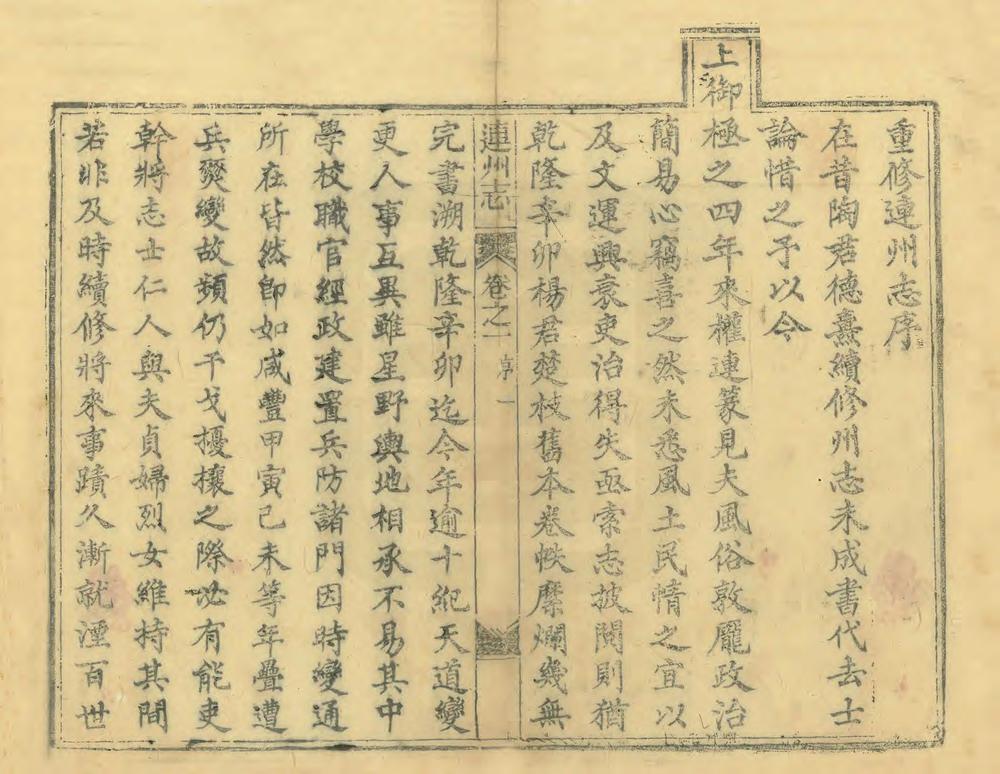 重修連州志序
在昔陶君德燾續修州志未成書代去士
論惜之予以今
上御極之四年來權連篆見夫風俗敦龐政治
簡易心竊喜之然未悉風土民情之宜以
及文運興衰吏治得失亟索志披閱則猶
乾隆辛卯楊君楚枝舊本卷帙糜爛幾無
連州志 卷之一 序 一
完書溯乾隆辛卯迄今年逾十紀天道變
更人事互異雖星野輿地相承不易其中
學校職官經政建置兵防諸門因時變通
所在皆然卽如咸豐甲寅己未等年疊遭
兵燹變故頻仍干戈擾攘之際必有能吏
幹將志士仁人與夫貞婦烈女維持其間
若非及時續修將來事蹟久漸就湮百世